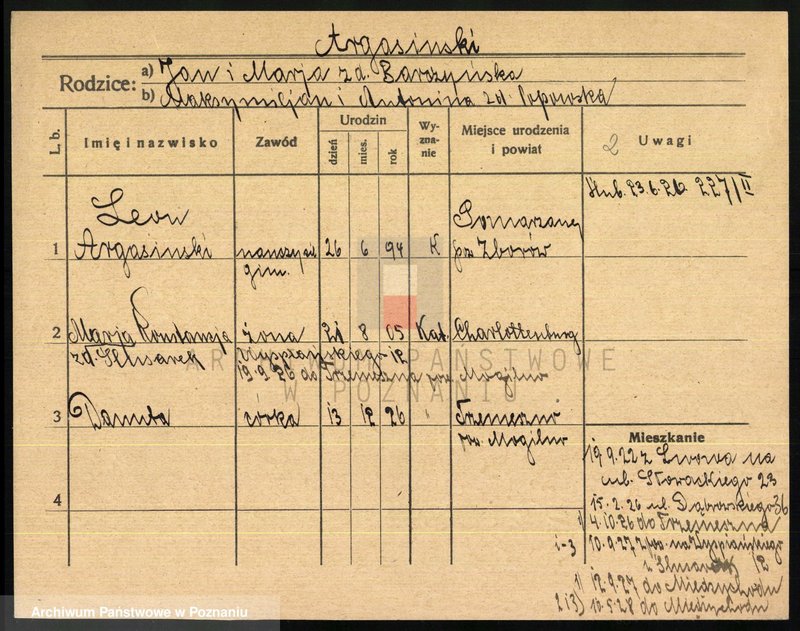 Argasinski
Rodzice: a) Jan i Marja z d. Barczyńska
b) Maksymiljan i Antonina z d. Popowska
L. b. Imię i nazwisko Zawód Urodzin dzień mies. rok Wyznanie Miejsce urodzenia i powiat 2 Uwagi
ślub. 23.6.26 227/II
1 Leon Argasinski nauczyciel gim. 26 6 94 K Pomarzany pow. Zborów
2 Marja Konstancja z d. Ślusarek żona 21 8 05 Kat. Charlottenburg
Wyspiańskiego 12
19.9.26 do Trzemeszna pow. Mogilno
3 Danuta córka 13 12 26 " Trzemeszno
pow. Mogilno
4
Mieszkanie
19.9.22 z Lwowa na
ul. Słowackiego 23
15.2.26 ul. Dąbrowskiego 36
1) 4.10.26 do Trzemeszna
1-3 10.9.27 na Wyspiańskiego
12
1) 12.9.27 do Międzychodu
2 i 3) 10.5.28 do Międzychodu
ARCHIWUM PAŃSTWOWE
W POZNANIU
Archiwum Państwowe w Poznaniu